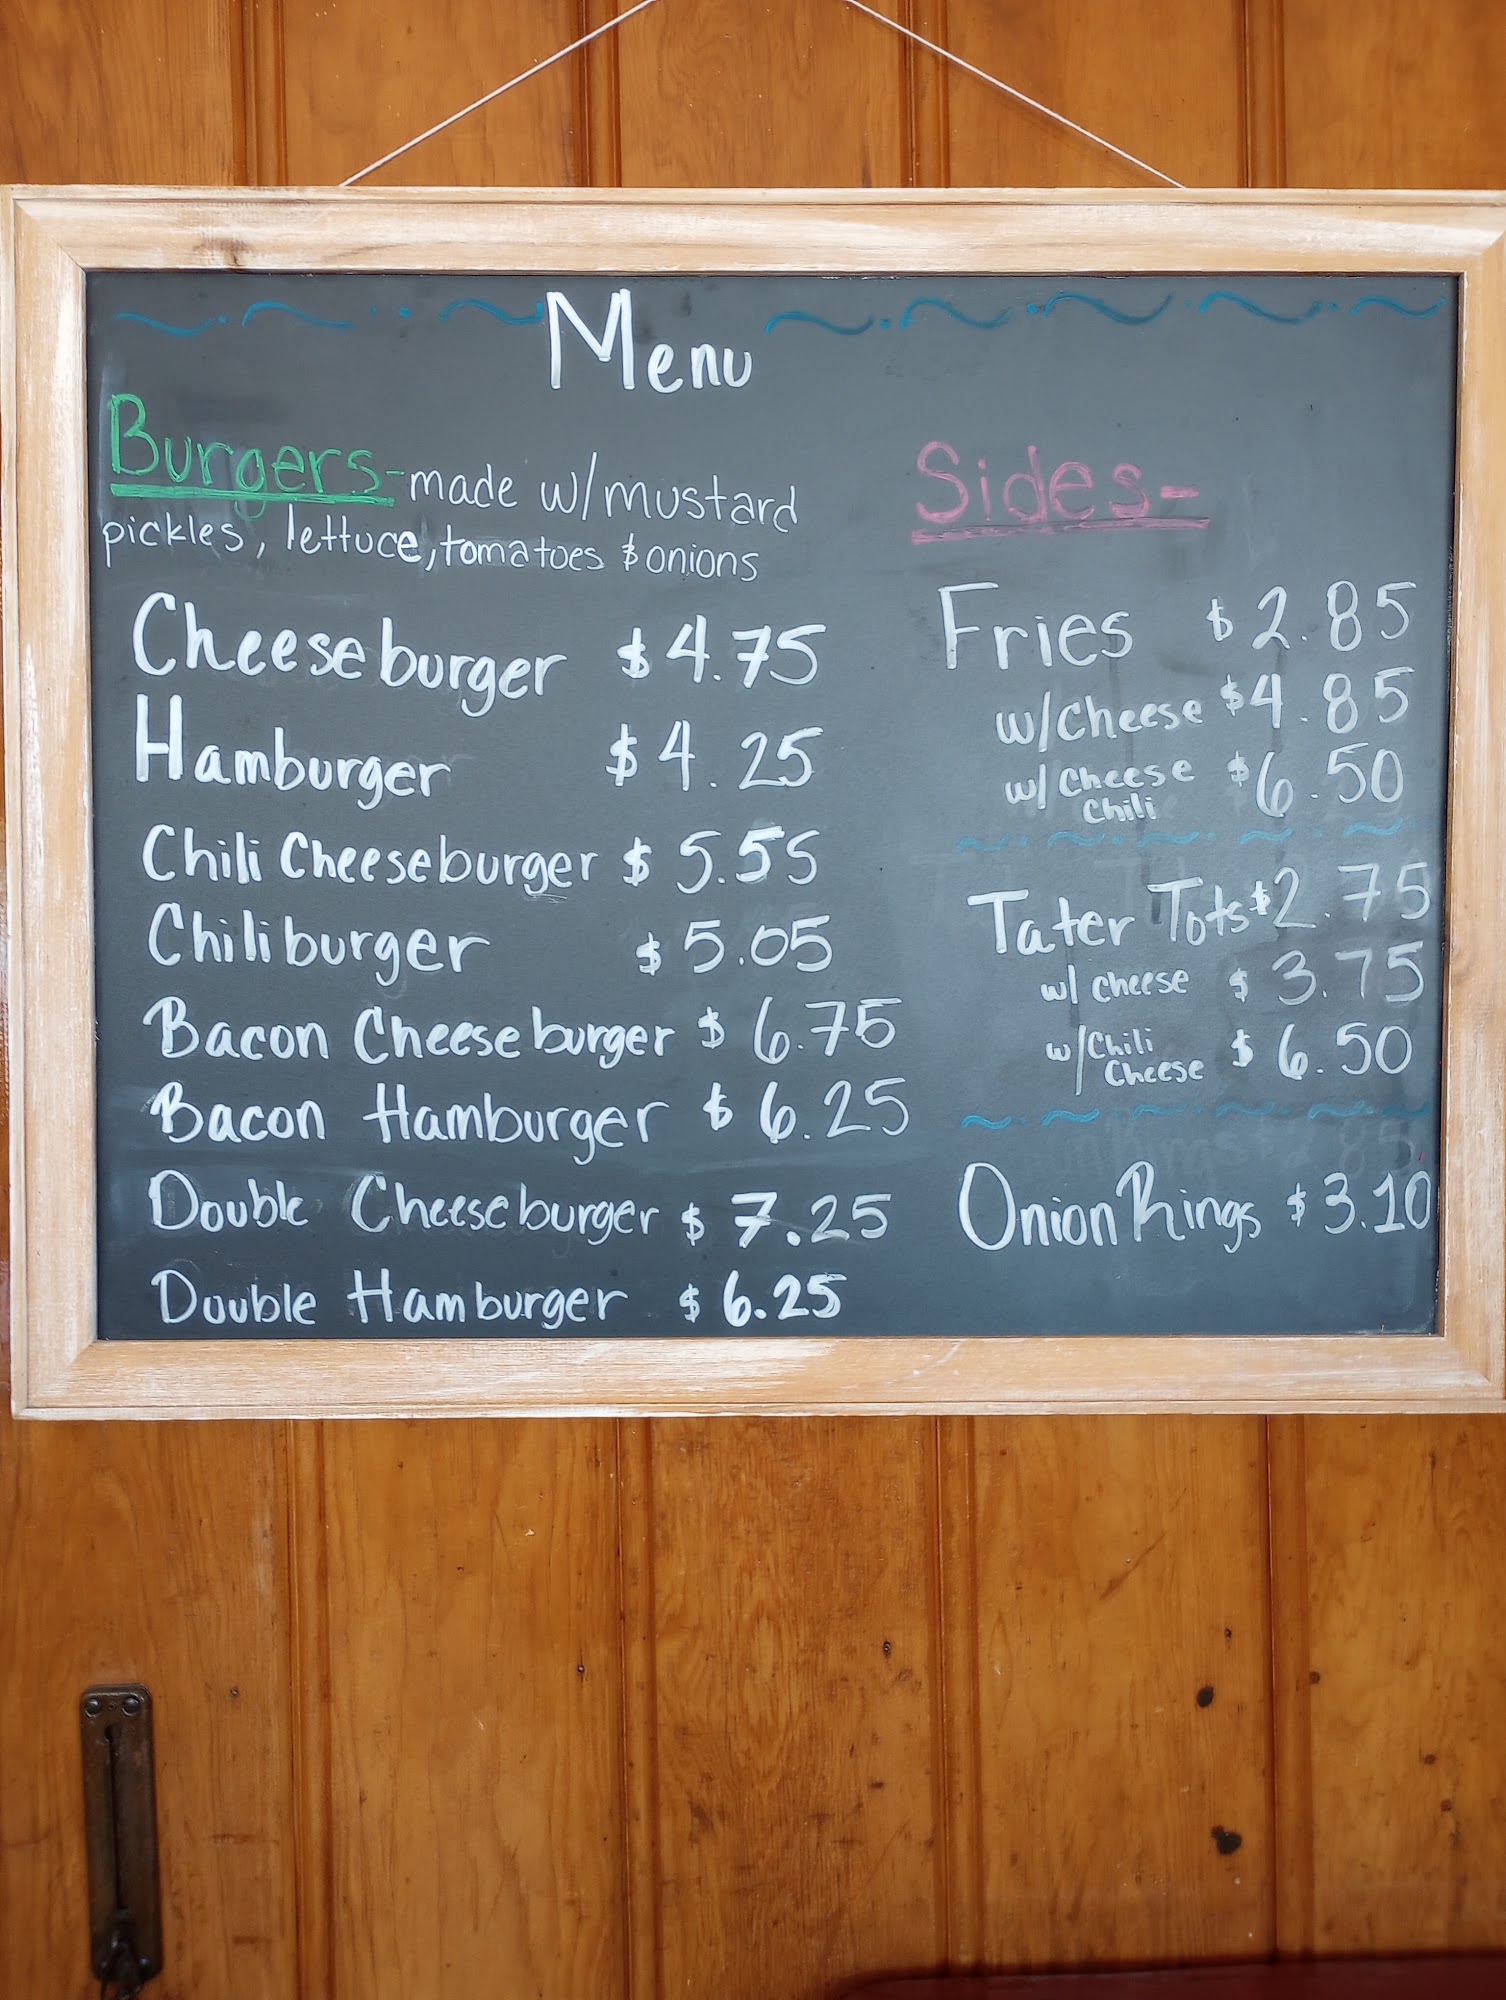 Menu
Burgers - made w/mustard
pickles, lettuce, tomatoes & onions
Cheeseburger $4.75
Hamburger $4.25
Chili Cheeseburger $5.55
Chiliburger $5.05
Bacon Cheeseburger $6.75
Bacon Hamburger $6.25
Double Cheeseburger $7.25
Double Hamburger $6.25
Sides-
Fries $2.85
w/Cheese $4.85
w/ Cheese $6.50
Chili
Tater Tots $2.75
w/ cheese $3.75
w/Chili $6.50
Cheese
Onion Rings $3.10